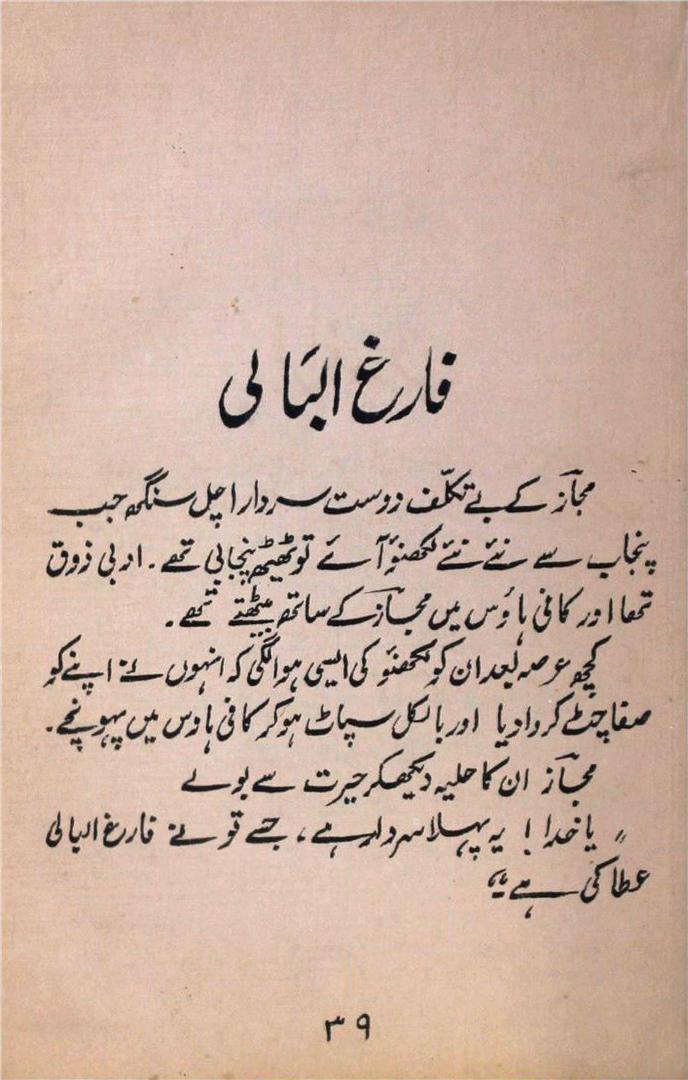 فارغ البالی
مجاز کے بے تکلّف دوست سردار اچل سنگھ جب
پنجاب سے نئے نئے لکھنؤ آئے تو ٹھیٹھ پنجابی تھے۔ ادبی ذوق
تھا اور کافی ہاؤس میں مجاز کے ساتھ بیٹھتے تھے۔
کچھ عرصہ بعد ان کو لکھنؤ کی ایسی ہوا لگی کہ انہوں نے اپنے کو
صفا چٹ کروا دیا اور بالکل سپاٹ ہو کر کافی ہاؤس میں پہونچے۔
مجاز ان کا حلیہ دیکھکر حیرت سے بولے
"یا خدا! یہ پہلا سردار ہے، جسے تو نے فارغ البالی
عطا کی ہے۔"
۳۹